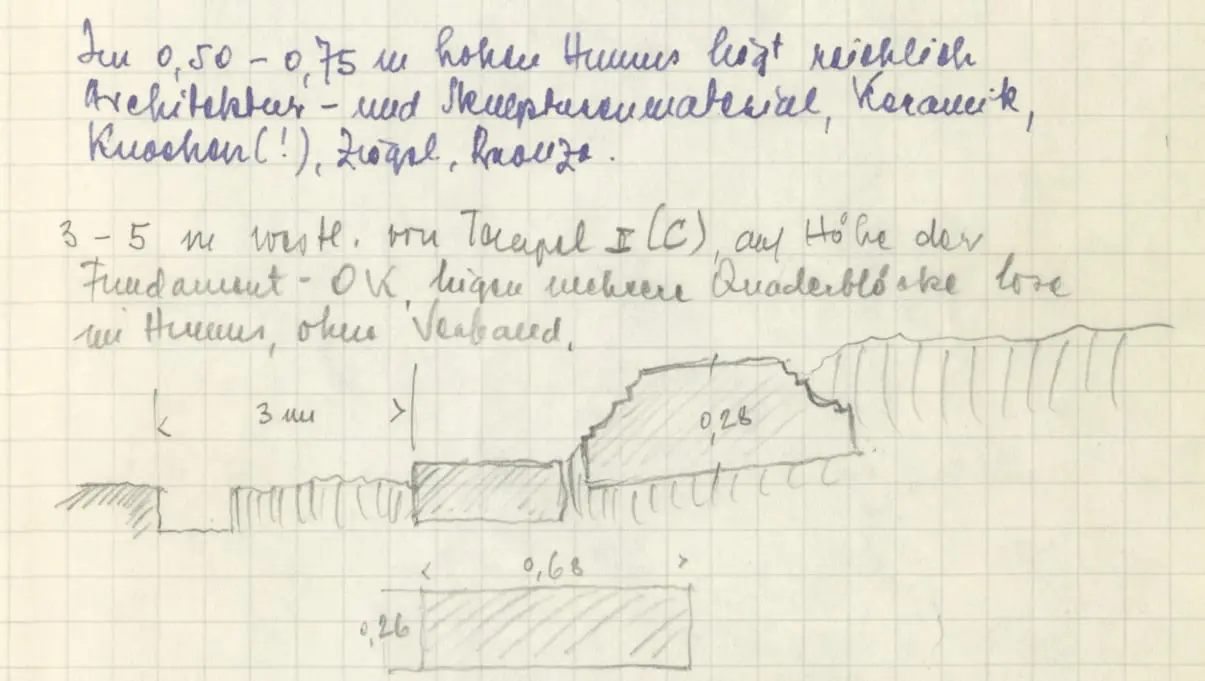 Im 0,50 - 0,75 m hohen Humus liegt reichlich
Architektur - und Skulpturenmaterial, Keramik,
Knochen(!), Ziegel, Bronze.
3 - 5 m westl. von Tempel II (C), auf Höhe der
Fundament - OK, liegen mehrere Quaderblöcke lose
im Humus, ohne Verband.
3 m
0,28
0,68
0,26